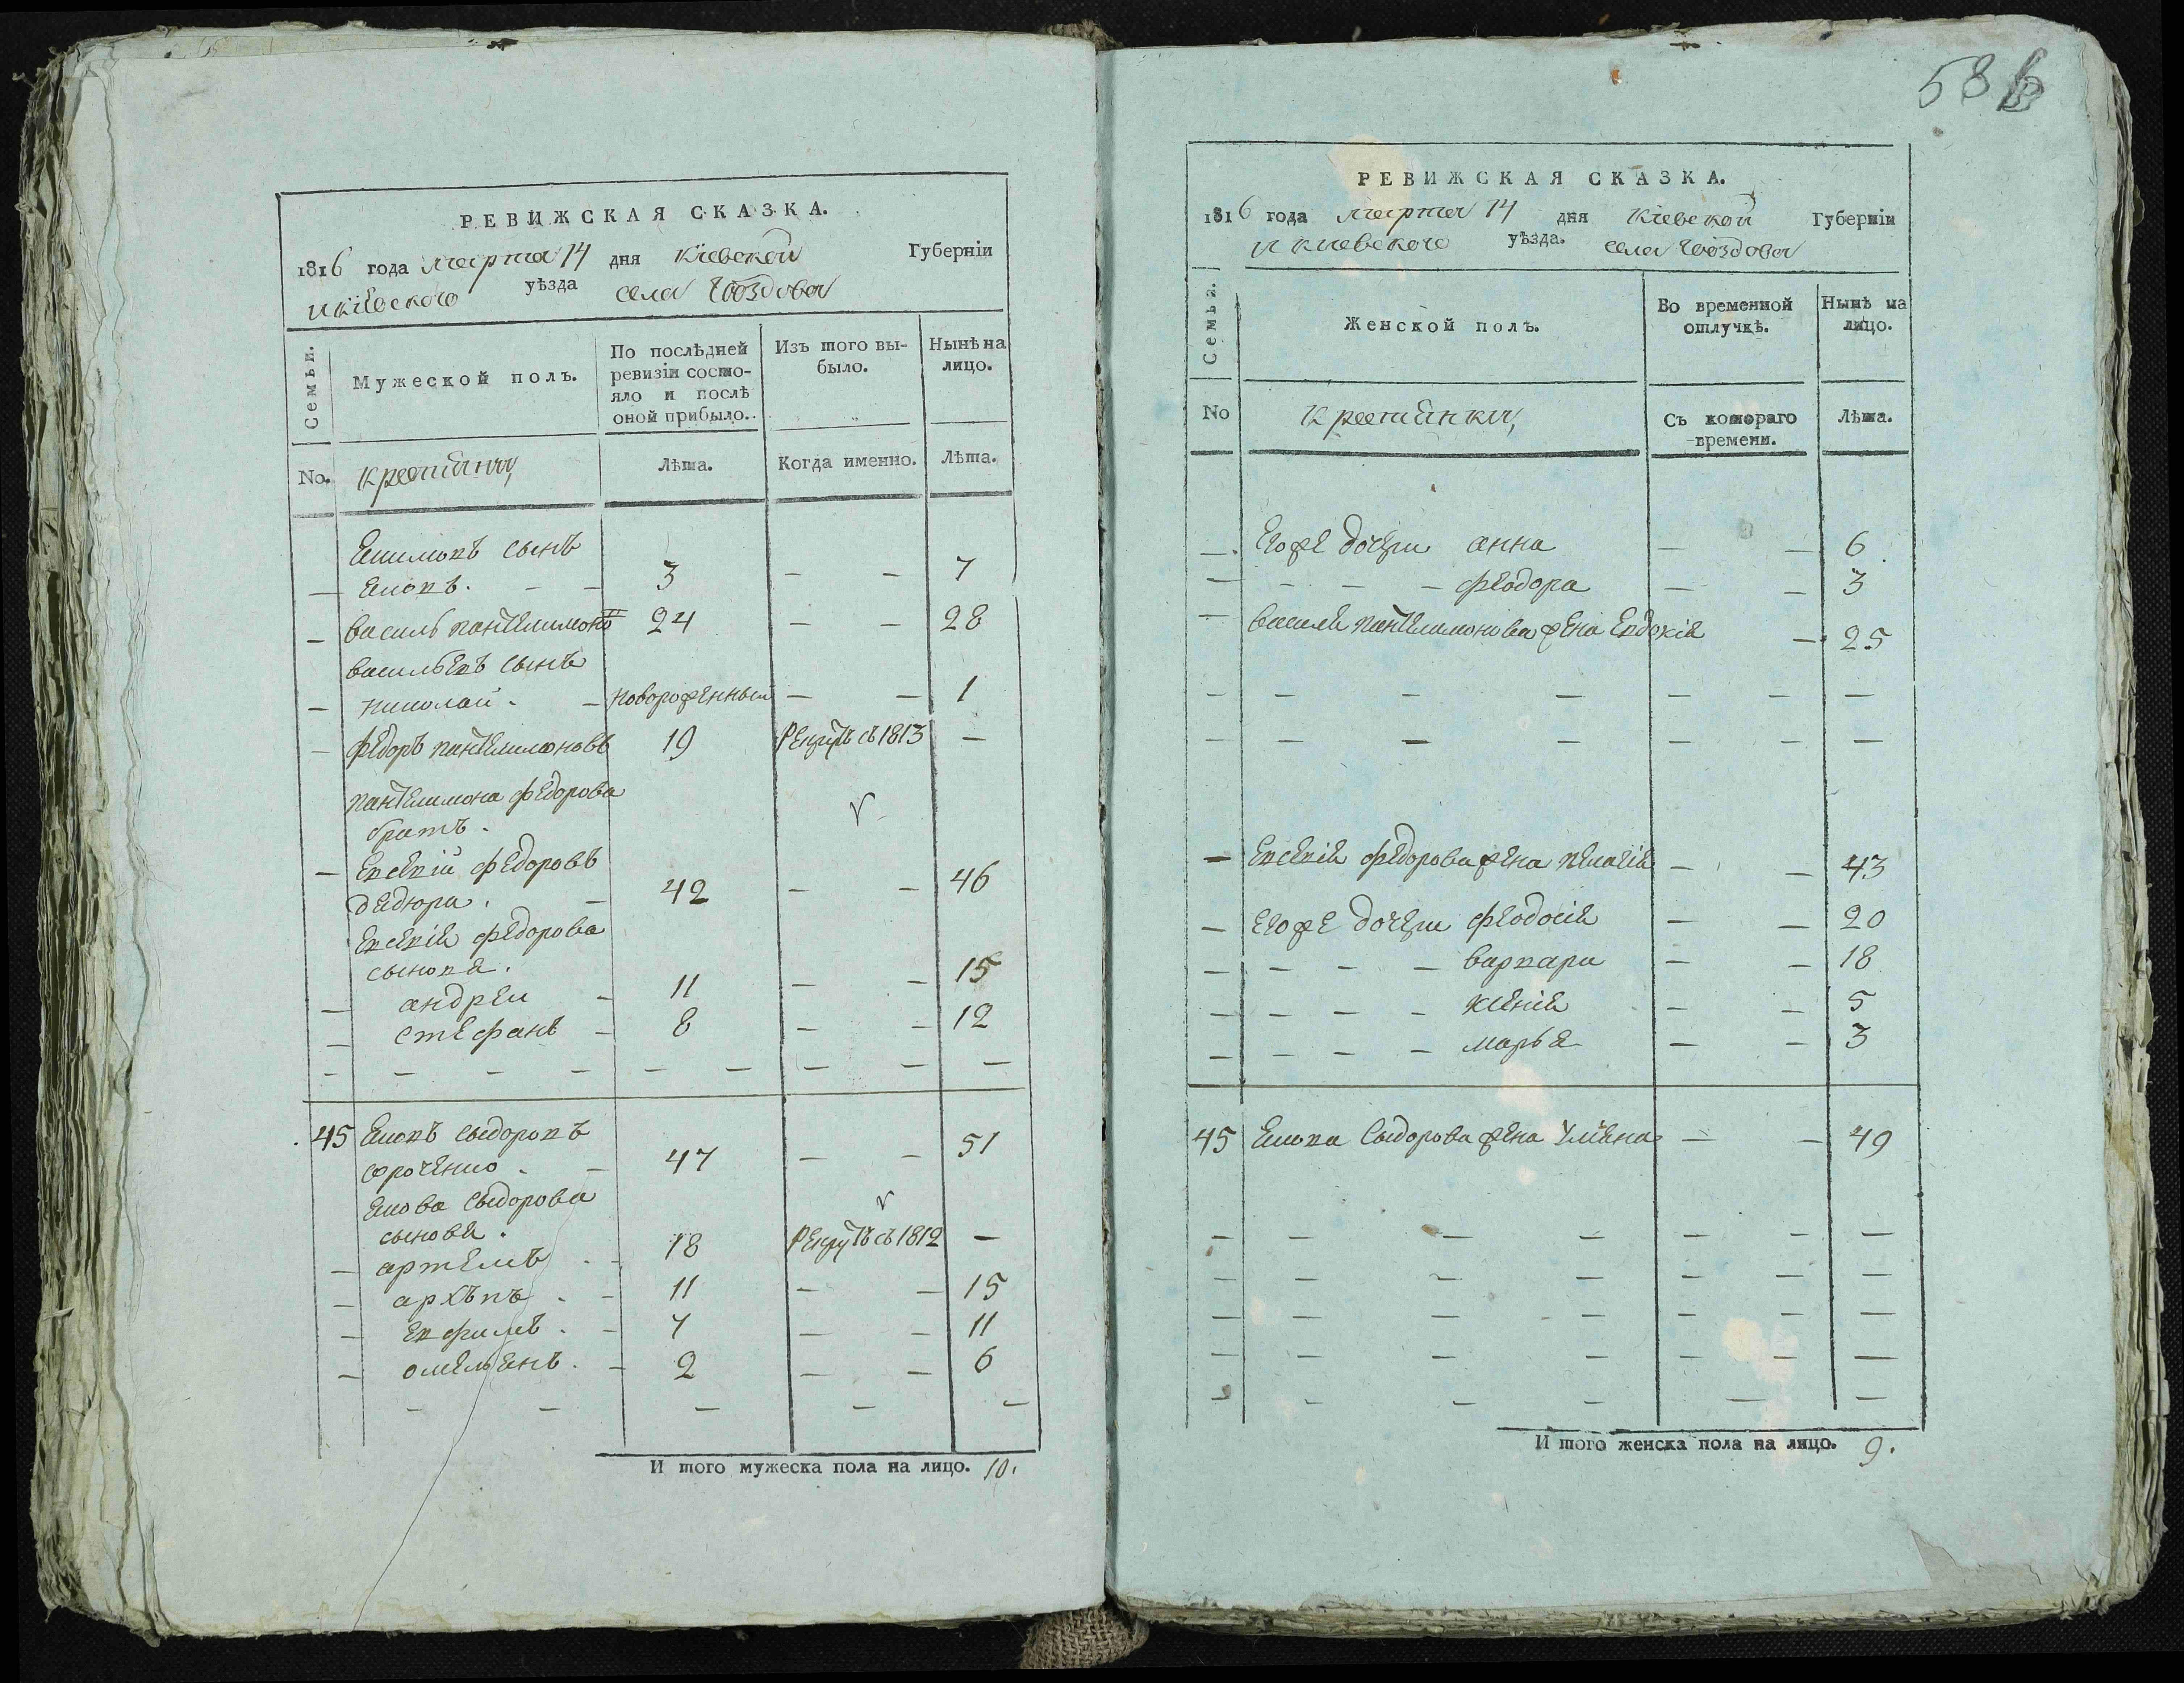 РЕВИЖСКАЯ СКАЗКА.
1816 года марта 14 дня Кіевской Губерніи
и кіевского уѣзда села Гвоздова
Семьи.
Мужеской полъ.
По послѣдней ревизіи состояло и послѣ оной прибыло.
Изъ того выбыло.
Нынѣ на лицо.
No.
крестяны,
Лѣта.
Когда именно.
Лѣта.
сынъ
— Яковъ. — — 3 — — 7
— василь пантелимоно 24 — — 28
васильевъ сынъ
— николай. — новороженный — — 1
— федоръ пантелимоновъ 19 рекрутъ съ 1813 —
пантелимона федорова
братъ.
— Евсевій федоровъ
дедюра. — 42 — — 46
Евсевія федорова
сыновя.
— андрей — 11 — — 15
— стефанъ — 8 — — 12
— — — — — — — — —
45 Яковъ сыдоровъ
— 47 — — 51
Якова сыдорова
сыновя.
— артемъ — 18 рекрутъ съ 1812 —
— архъпъ — 11 — — 15
— Ефимъ — 7 — — 11
— омелянъ. — 2 — — 6
— — — — —
И того мужеска пола на лицо. 10.
58
РЕВИЖСКАЯ СКАЗКА.
1816 года марта 14 дня Кіевской Губерніи
и киевского уѣзда. села Гвоздова
Семьи.
Женской полъ.
Во временной отлучкѣ.
Нынѣ на лицо.
No
крестянки,
Съ котораго времени.
Лѣта.
— Егоже дочери анна — — 6
— — — — феодора — — 3
— василя пантелимонова жена Евдокія — 25
— — — — — — —
— — — — — — —
— Евсевія федорова жена пелагія — — 43
— Егоже дочери феодосія — — 20
— — — — варвара — — 18
— — — — ксенія — — 5
— — — — марья — — 3
45 Якова Сыдорова жена Уляна — — 49
— — — — — — —
— — — — — — —
— — — — — — —
— — — — — — —
— — — — — —
И того женска пола на лицо. 9.